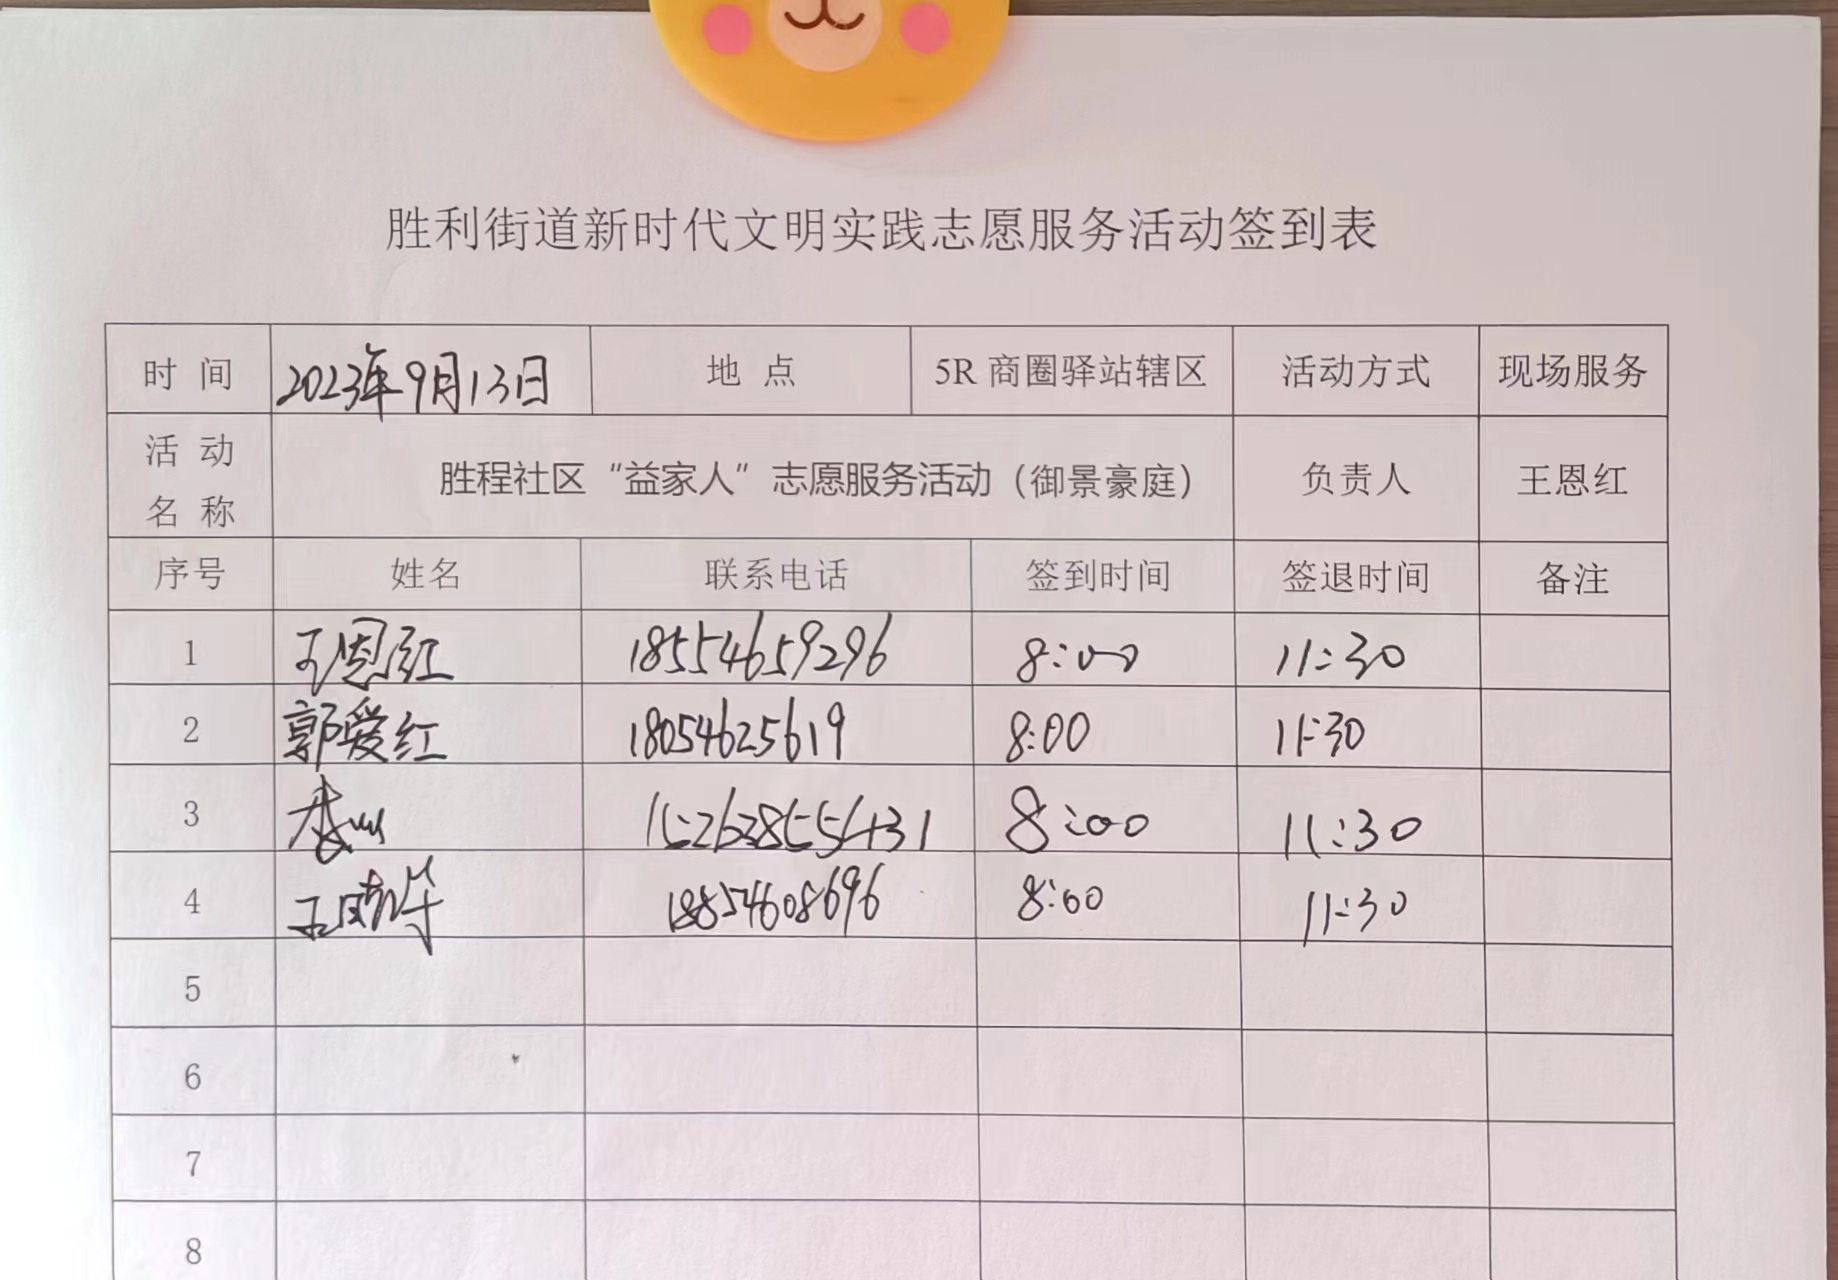 胜利街道新时代文明实践志愿服务活动签到表
时 间 2023年9月13日 地 点 5R 商圈驿站辖区 活动方式 现场服务
活 动
名 称 胜程社区“益家人”志愿服务活动（御景豪庭） 负责人 王恩红
序号 姓名 联系电话 签到时间 签退时间 备注
1 王恩红 18554659296 8:00 11:30
2 郭爱红 18054625619 8:00 11:30
3 8:00 11:30
4 18854608696 8:00 11:30
5
6
7
8